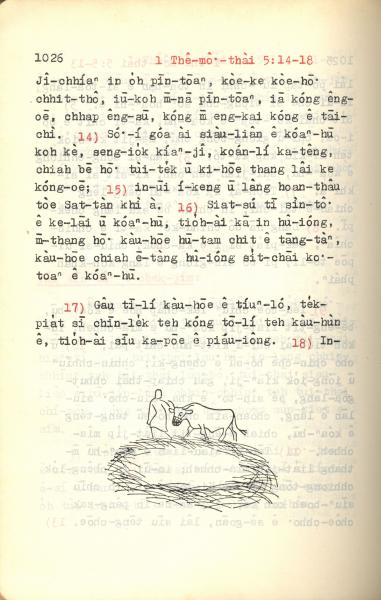 1026
1 Thê-mô·-thài 5:14-18
Jî-chhíaⁿ in òh pīn-tōaⁿ, kòe-ke kòe-hō·
chhit-thô, iū-koh m̄-nā pīn-tōaⁿ, iā kóng êng-
oē, chhap êng-sū, kóng m̄ eng-kai kóng ê tāi-
chì. 14) Só·-í góa ài siàu-liân ê kóaⁿ-hū
koh kè, seng-io̍k kíaⁿ-jî, koán-lí ka-têng,
chiah bē hō· tùi-te̍k ū ki-hōe thang lâi ke
kóng-oē; 15) in-ūi í-keng ū lâng hoan-thâu
tòe Sat-tàn khì à. 16) Siat-sú tī sìn-tô·
ê ke-lāi ū kóaⁿ-hū, tio̍h-ài kā in hū-ióng,
m̄-thang hō· kàu-hōe hū-tam chit ê tàng-tàⁿ,
kàu-hōe chiah ē-tàng hū-ióng sit-chāi ko·-
toaⁿ ê kóaⁿ-hū.
17) Gâu tī-lí kàu-hōe ê tíuⁿ-ló, te̍k-
pia̍t sī chīn-le̍k teh kóng tō-lí teh kàu-hùn
ê, tio̍h-ài sīu ka-pōe ê piàu-iong. 18) In-